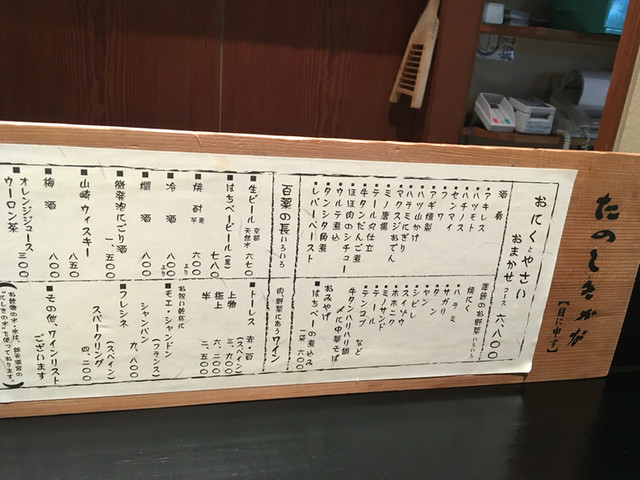 たのしきかな
【目に申す】
おにくとやさい
おまかせコース 六、八〇〇
酒肴
・アキレス
・ハツモト
・センマイ
・フワ
・アギ燻製
・ハツ山かけ
・ハラミにぎり
・マクスジおでん
・ミノ唐揚
・テール丸仕立
・牛タンだんご煮
・ほほ肉のシチュー
・ウルテ煮込
・タンシタ角煮
・レバーペースト
季節のお野菜いろいろ
焼にく
・ハラミ
・サガリ
・タン
・シャン
・シビレ
・ハツ
・ホホニク
・ミノサンド
・テール
・テンコブ など
牛タンハリハリ鍋
ハチノスに中華そば
おみやげ
■はちべーの煮込み
一袋 六〇〇
百薬の長いろいろ
■生ビール 京都天然水 六七〇
■はちべービール(黒) 七八〇
■焼酎 麦 芋 六〇〇より
■冷酒 八〇〇より
■燗酒 八〇〇
■微発泡にごり酒 一、五〇〇
■山崎ウィスキー 八五〇
■梅酒
■オレンジジュース
ウーロン茶 三〇〇
肉野菜にあうワイン
■トーレス 赤・白
(スペイン)
上物 三、九〇〇
極上 六、二〇〇
半 二、五〇〇
お祝い乾杯に
■モエ・シャンドン
(フランス)
シャンパン 九、八〇〇
■フレシネ
(スペイン)
スパークリング 四、二〇〇
■その他 ワインリスト
ございます